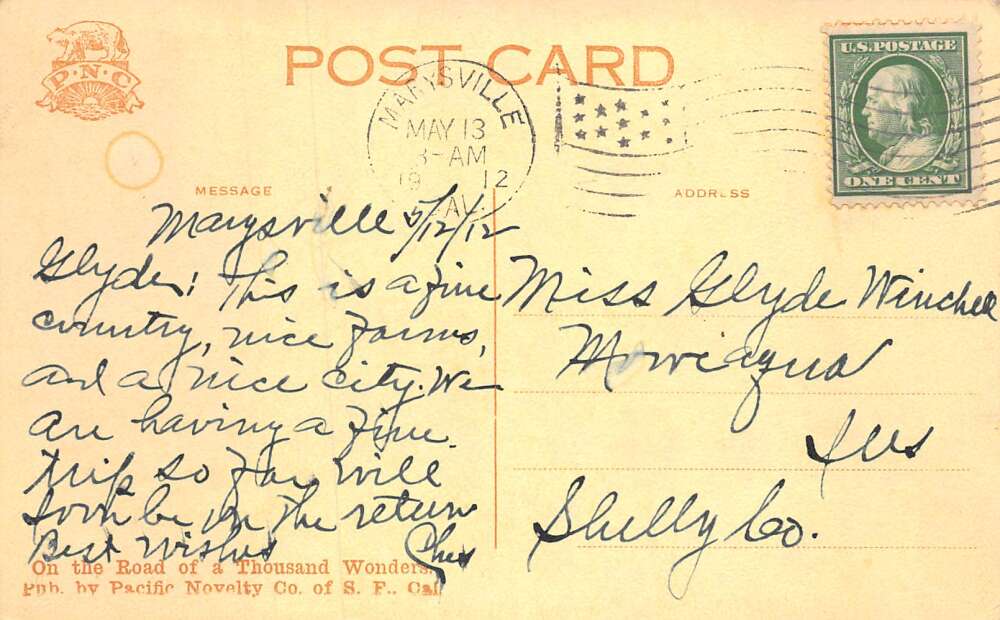 P·N·C
POST CARD
U.S. POSTAGE
ONE CENT
MARYSVILLE
MAY 13
3-AM
19 12
CAL.
MESSAGE
ADDRESS
Marysville 5/12/12
Glyde; This is a fine
country, nice farms,
and a nice city. We
are having a fine
trip so far will
soon be on the return
Best Wishes Ches
Miss Glyde Winchell
Moweaqua
Ills
Shelby Co.
On the Road of a Thousand Wonders.
Pub. by Pacific Novelty Co. of S. F., Cal